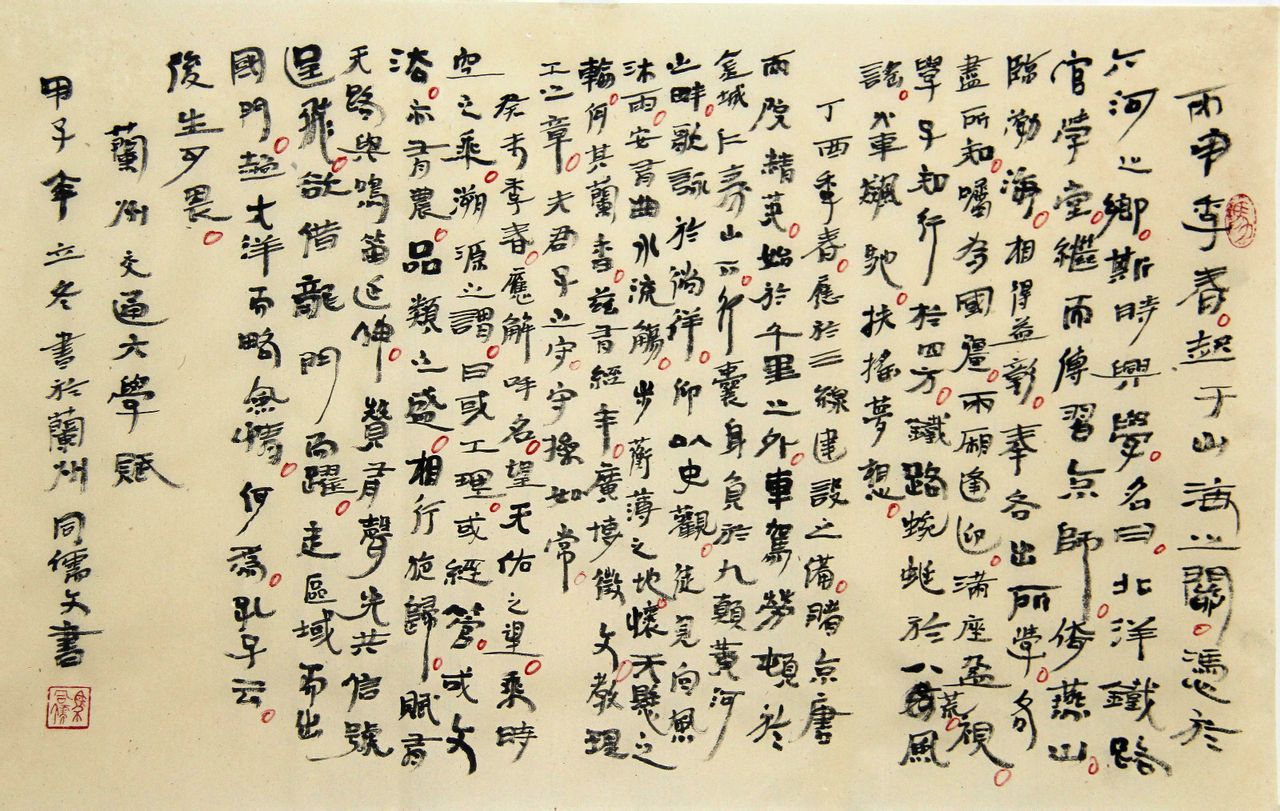 丙申季春。起于山海之關。憑於
六河之鄉。斯時興學。名曰北洋鐵路
官學堂。繼而傳習京師。倚燕山
臨渤海。相得益彰。奉各出所學。各
盡所知。囑為國疆。兩廂逢迎。滿座盈視。
學子知行於四方。鐵路蜿蜒於八荒。風
謠。火車飆馳。扶搖夢想。
丁酉季春。應於三線建設之備。睹京唐
兩院精英。始於千里之外。車駕勞頓於
金城仁壽山下。行囊身負於九顛黃河
之畔。歌詠於徜徉。仰以史觀。徒見向風
沐雨。安有曲水流觴。步蘅薄之地。懷天懸之
輪。何其蘭香。茲有經年。廣博徵文。教理
工之章。夫君子之守。守操如常。
癸未季春。應解呼名。望天佑之望。乘時
空之乘。溯源之謂。曰或工理。或經管。或文
法。亦有農。品類之盛。相行旋歸。賦有
天路與鳴笛延伸。贊有聲光共信號
呈飛。欲借龍門而躍。走區域而出
國門。越大洋而略無情。何為。孔子云。
後生可畏。
蘭州交通大學賦
甲子年立冬書於蘭州 同儒文書